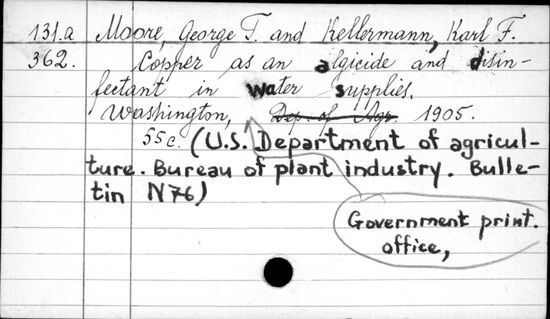 131.a Moore, George T. and Kellermann, Karl F.
362. Copper as an algicide and disin-
fectant in water supplies.
Washington, Dep. of Agr. 1905.
55 c. (U.S. Department of agricul-
ture. Bureau of plant industry. Bulle-
tin N76)
Government print.
office,